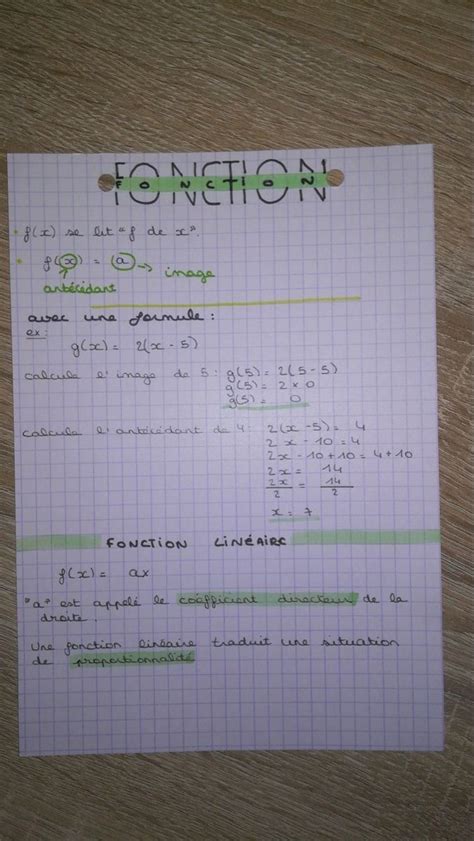 FONCTION
FONCTION
f(x) se lit "f de x".
f(x) = a → image
antécédant
avec une formule :
ex:
g(x) = 2(x - 5)
calcule l'image de 5 : g(5) = 2(5 - 5)
g(5) = 2 x 0
g(5) = 0
calcule l'antécédant de 4 : 2(x - 5) = 4
2x - 10 = 4
2x - 10 + 10 = 4 + 10
2x = 14
2x/2 = 14/2
x = 7
FONCTION LINÉAIRE
f(x) = ax
"a" est appelé le coéfficient directeur de la
droite.
Une fonction linéaire traduit une situation
de proportionnalité